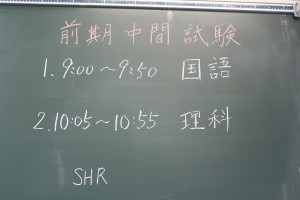 前期中間試験
1. 9:00～9:50 国語
2. 10:05～10:55 理科
SHR